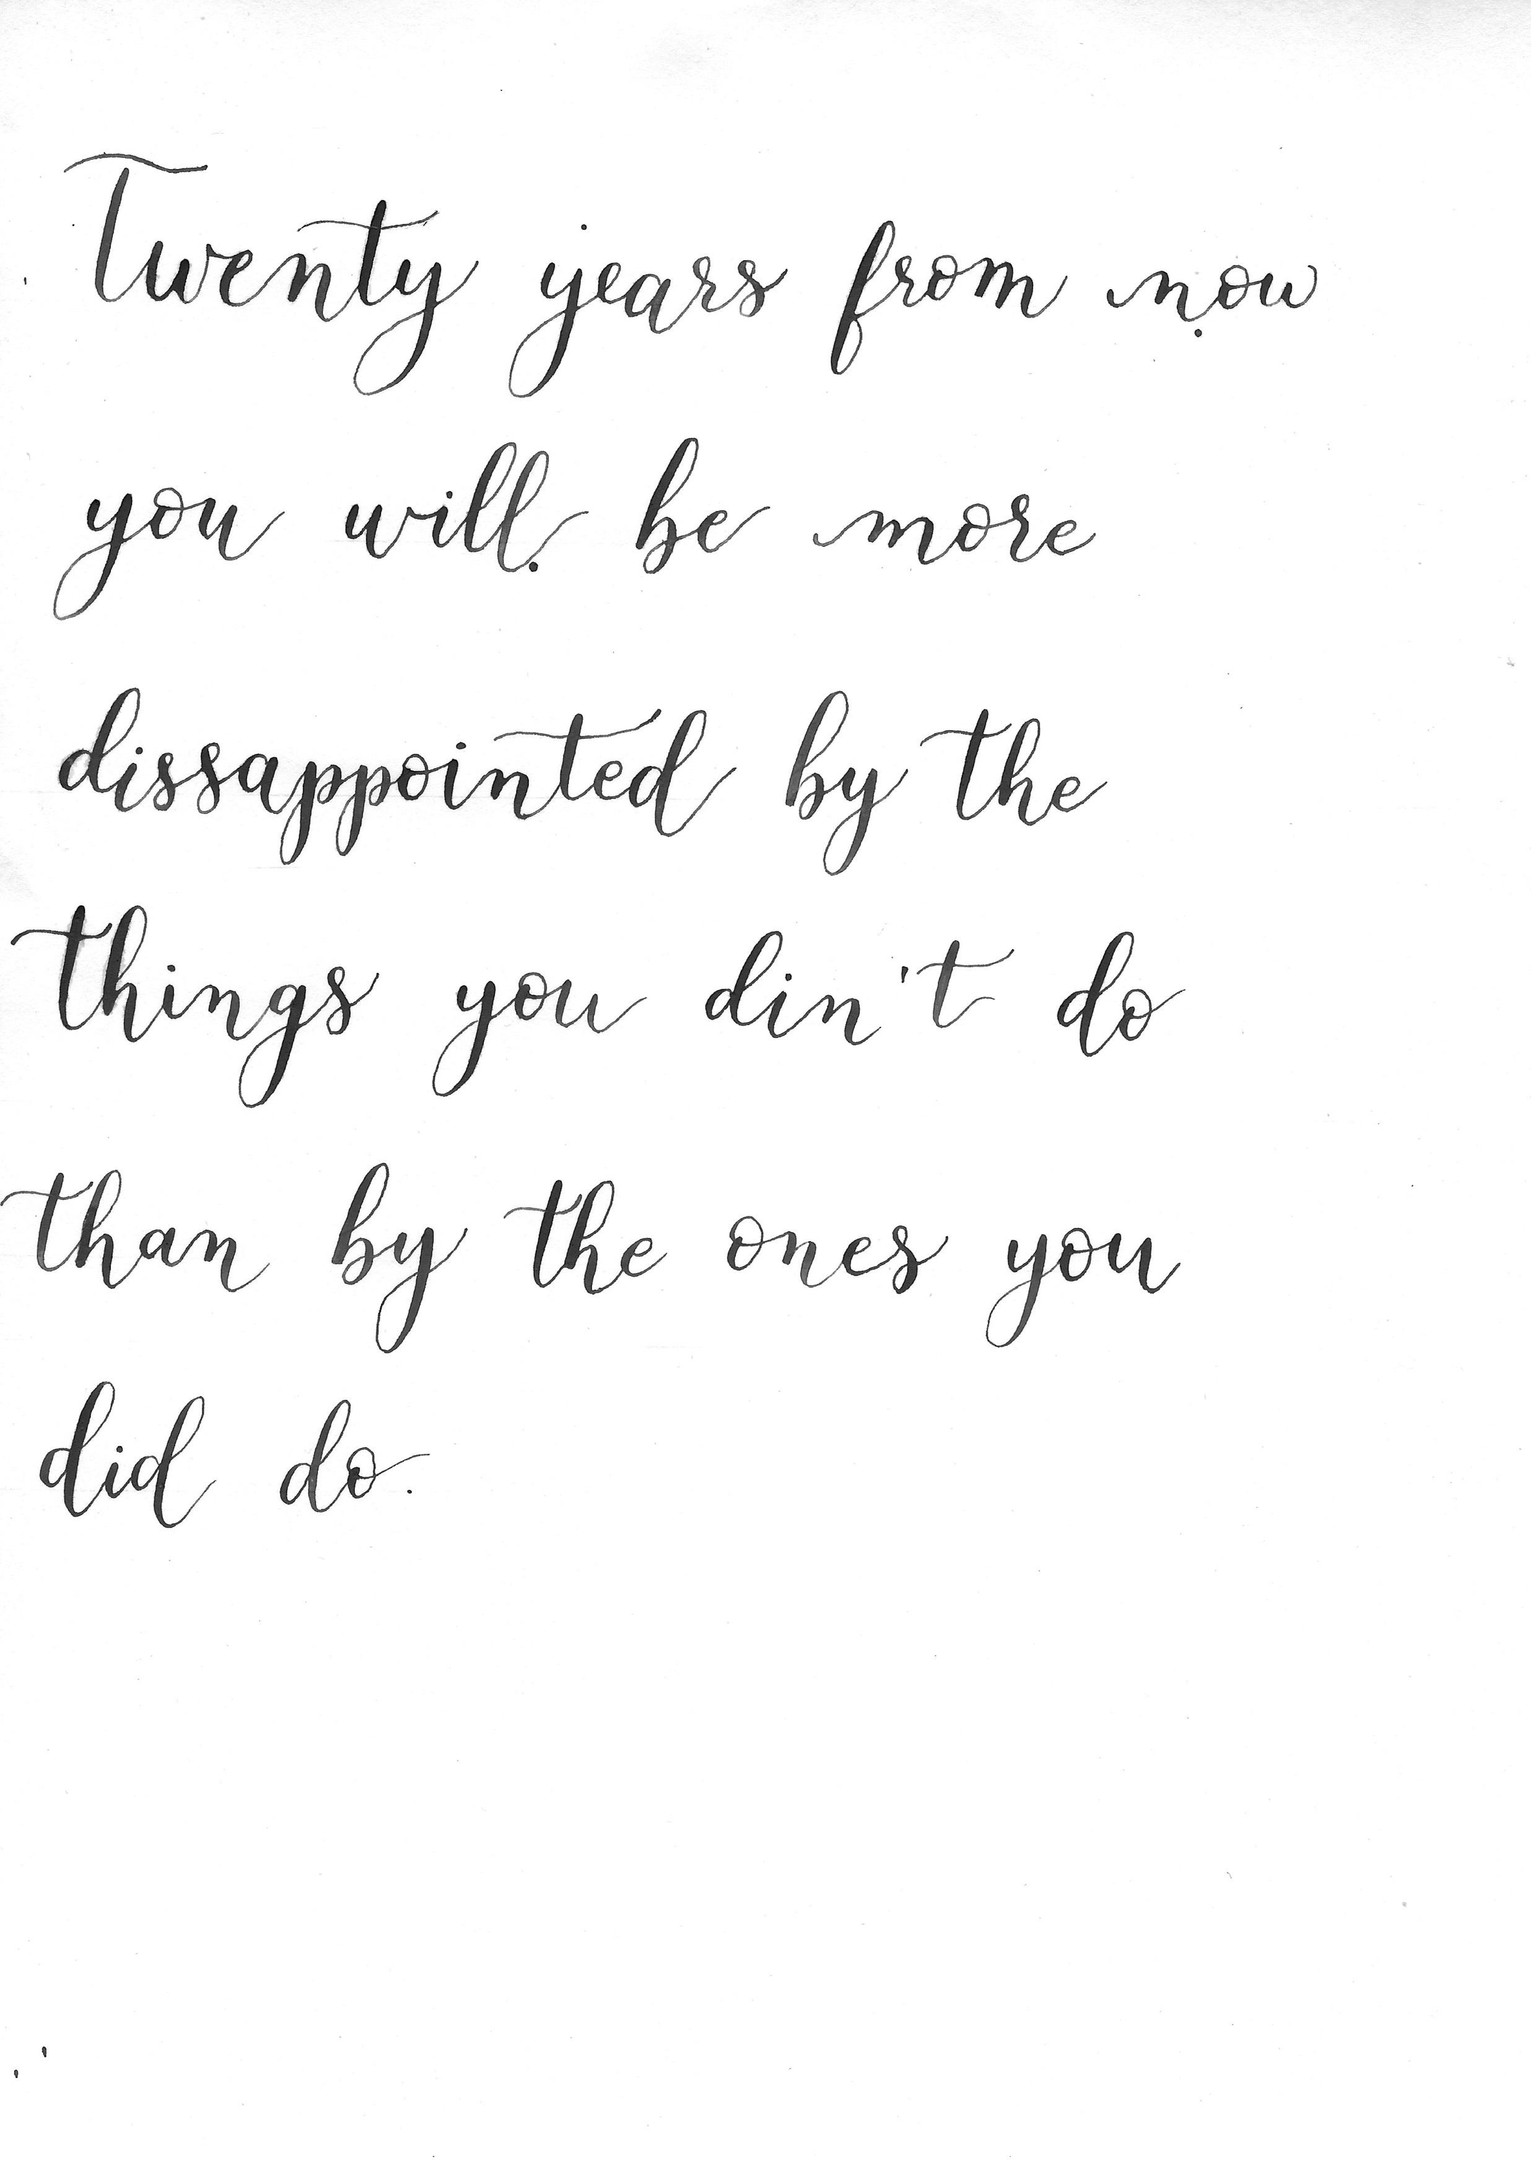 Twenty years from now
you will be more
dissappointed by the
things you din't do
than by the ones you
did do.